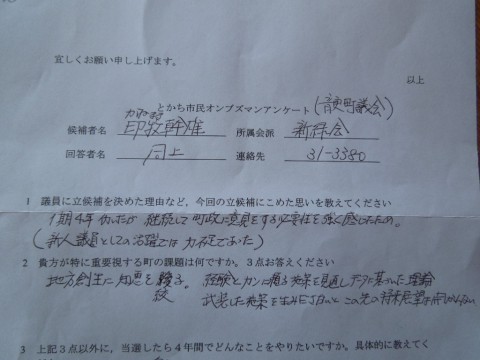 宜しくお願い申し上げます。
以上
とかち市民オンブズマンアンケート(音更町議会)
候補者名 印牧幹雄 所属会派 新緑会
回答者名 同上 連絡先 31-3380
1 議員に立候補を決めた理由など、今回の立候補にこめた思いを教えてください
1期4年 継続して町政に意見をする必要性を強く感じたため。
(新人議員としての活躍では力不足であった)
2 貴方が特に重要視する町の課題は何ですか。3点お答えください
地方創生に知恵を 経験とカンに頼る政策を見直しデータに基づいた理論
武装した政策を この先の将来展望は
3 上記3点以外に、当選したら4年間でどんなことをやりたいですか。具体的に教えてく